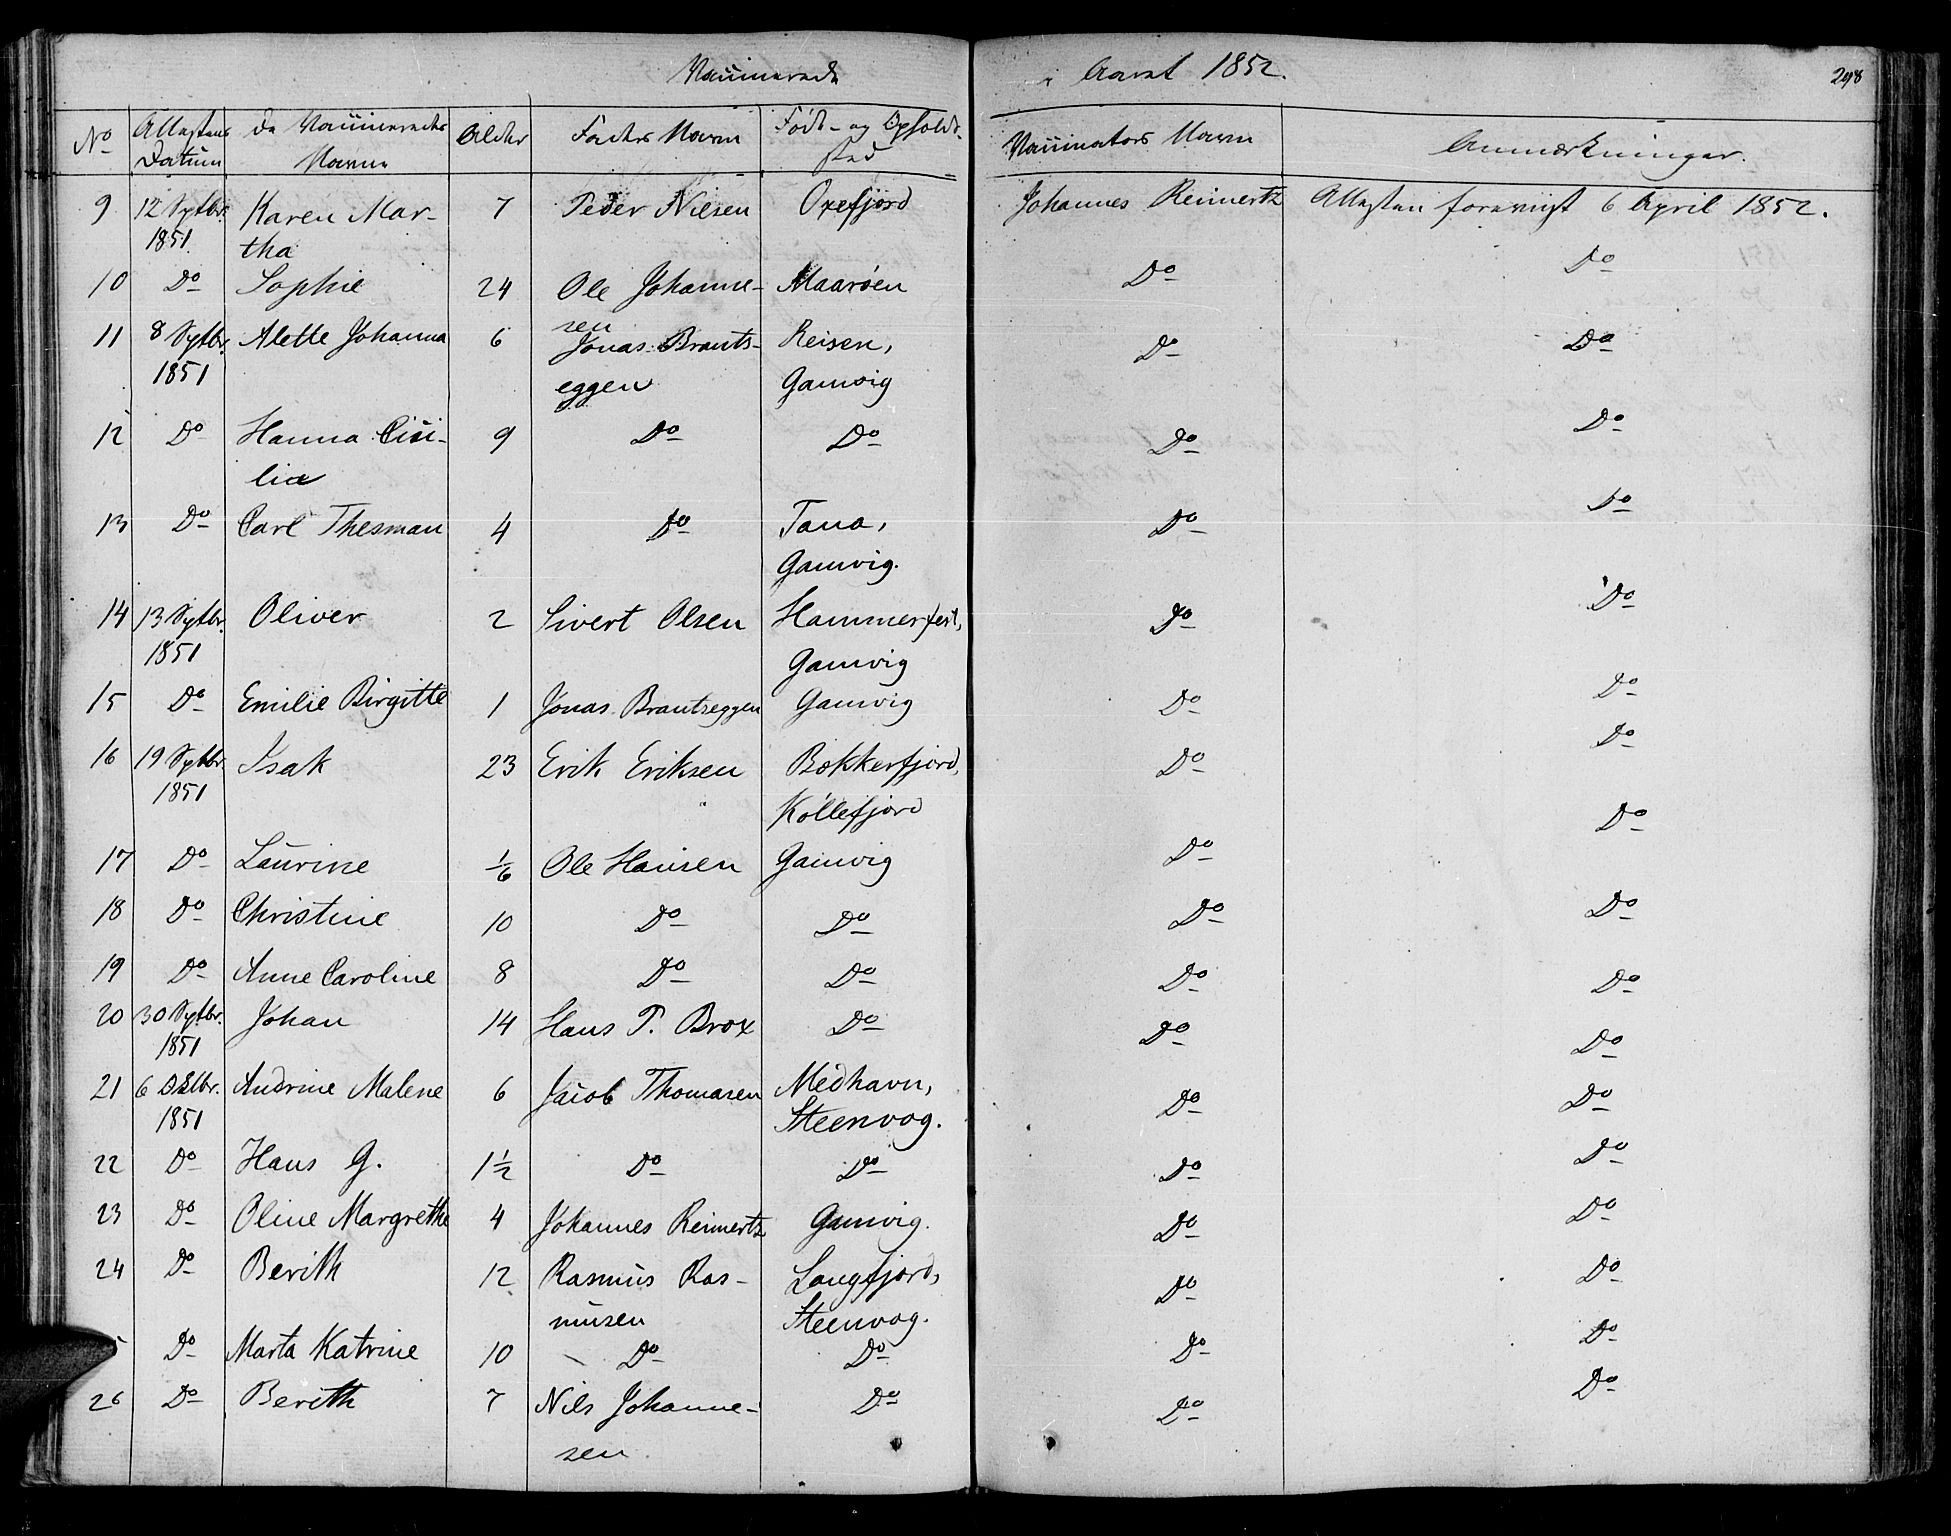 Vaccinerede i Aaret 1852. 298
No Attestens Datum De Vaccineredes Navne Alder Faders Navn Føde- og Opholds-sted Vaccinators Navn Anmærkninger.
9 12 Septbr. Karen Mar- 7 Peder Nilsen Oxefjord Johannes Reinertz Attesten foreviist 6 April 1852.
1851 tha
10 Do Sophie 24 Ole Johanne- Maarøen Do Do
sen
11 8 Septbr. Alette Johanna 6 Jonas Brauts- Reisen, Do Do
1851 eggen Gamvig
12 Do Hanna Cici- 9 Do Do Do Do
lia
13 Do Carl Thesman 4 Do Tana, Do Do
Gamvig.
14 13 Septbr. Oliver 2 Sivert Olsen Hammerfest, Do Do
1851 Gamvig
15 Do Emilie Birgitte 1 Jonas Brautseggen Gamvig Do Do
16 19 Septbr. Isak 23 Erik Eriksen Bekkerfjord, Do Do
1851 Køllefjord
17 Do Laurine 1/6 Ole Hansen Gamvig Do Do
18 Do Christine 10 Do Do Do Do
19 Do Anne Caroline 8 Do Do Do Do
20 30 Septbr. Johan 14 Hans P. Brox Do Do Do
1851
21 6 Oktbr. Andrine Malene 6 Jacob Thomasen Medhavn, Do Do
1851 Steenvog.
22 Do Hans G. 1 1/2 Do Do Do Do
23 Do Oline Margrethe 4 Johannes Reinertz Gamvig. Do Do
24 Do Berith 12 Rasmus Ras- Langfjord, Do Do
musen Steenvog.
5 Do Marta Katrine 10 Do Do Do Do
26 Do Berith 7 Nils Johanne- Do Do Do
sen